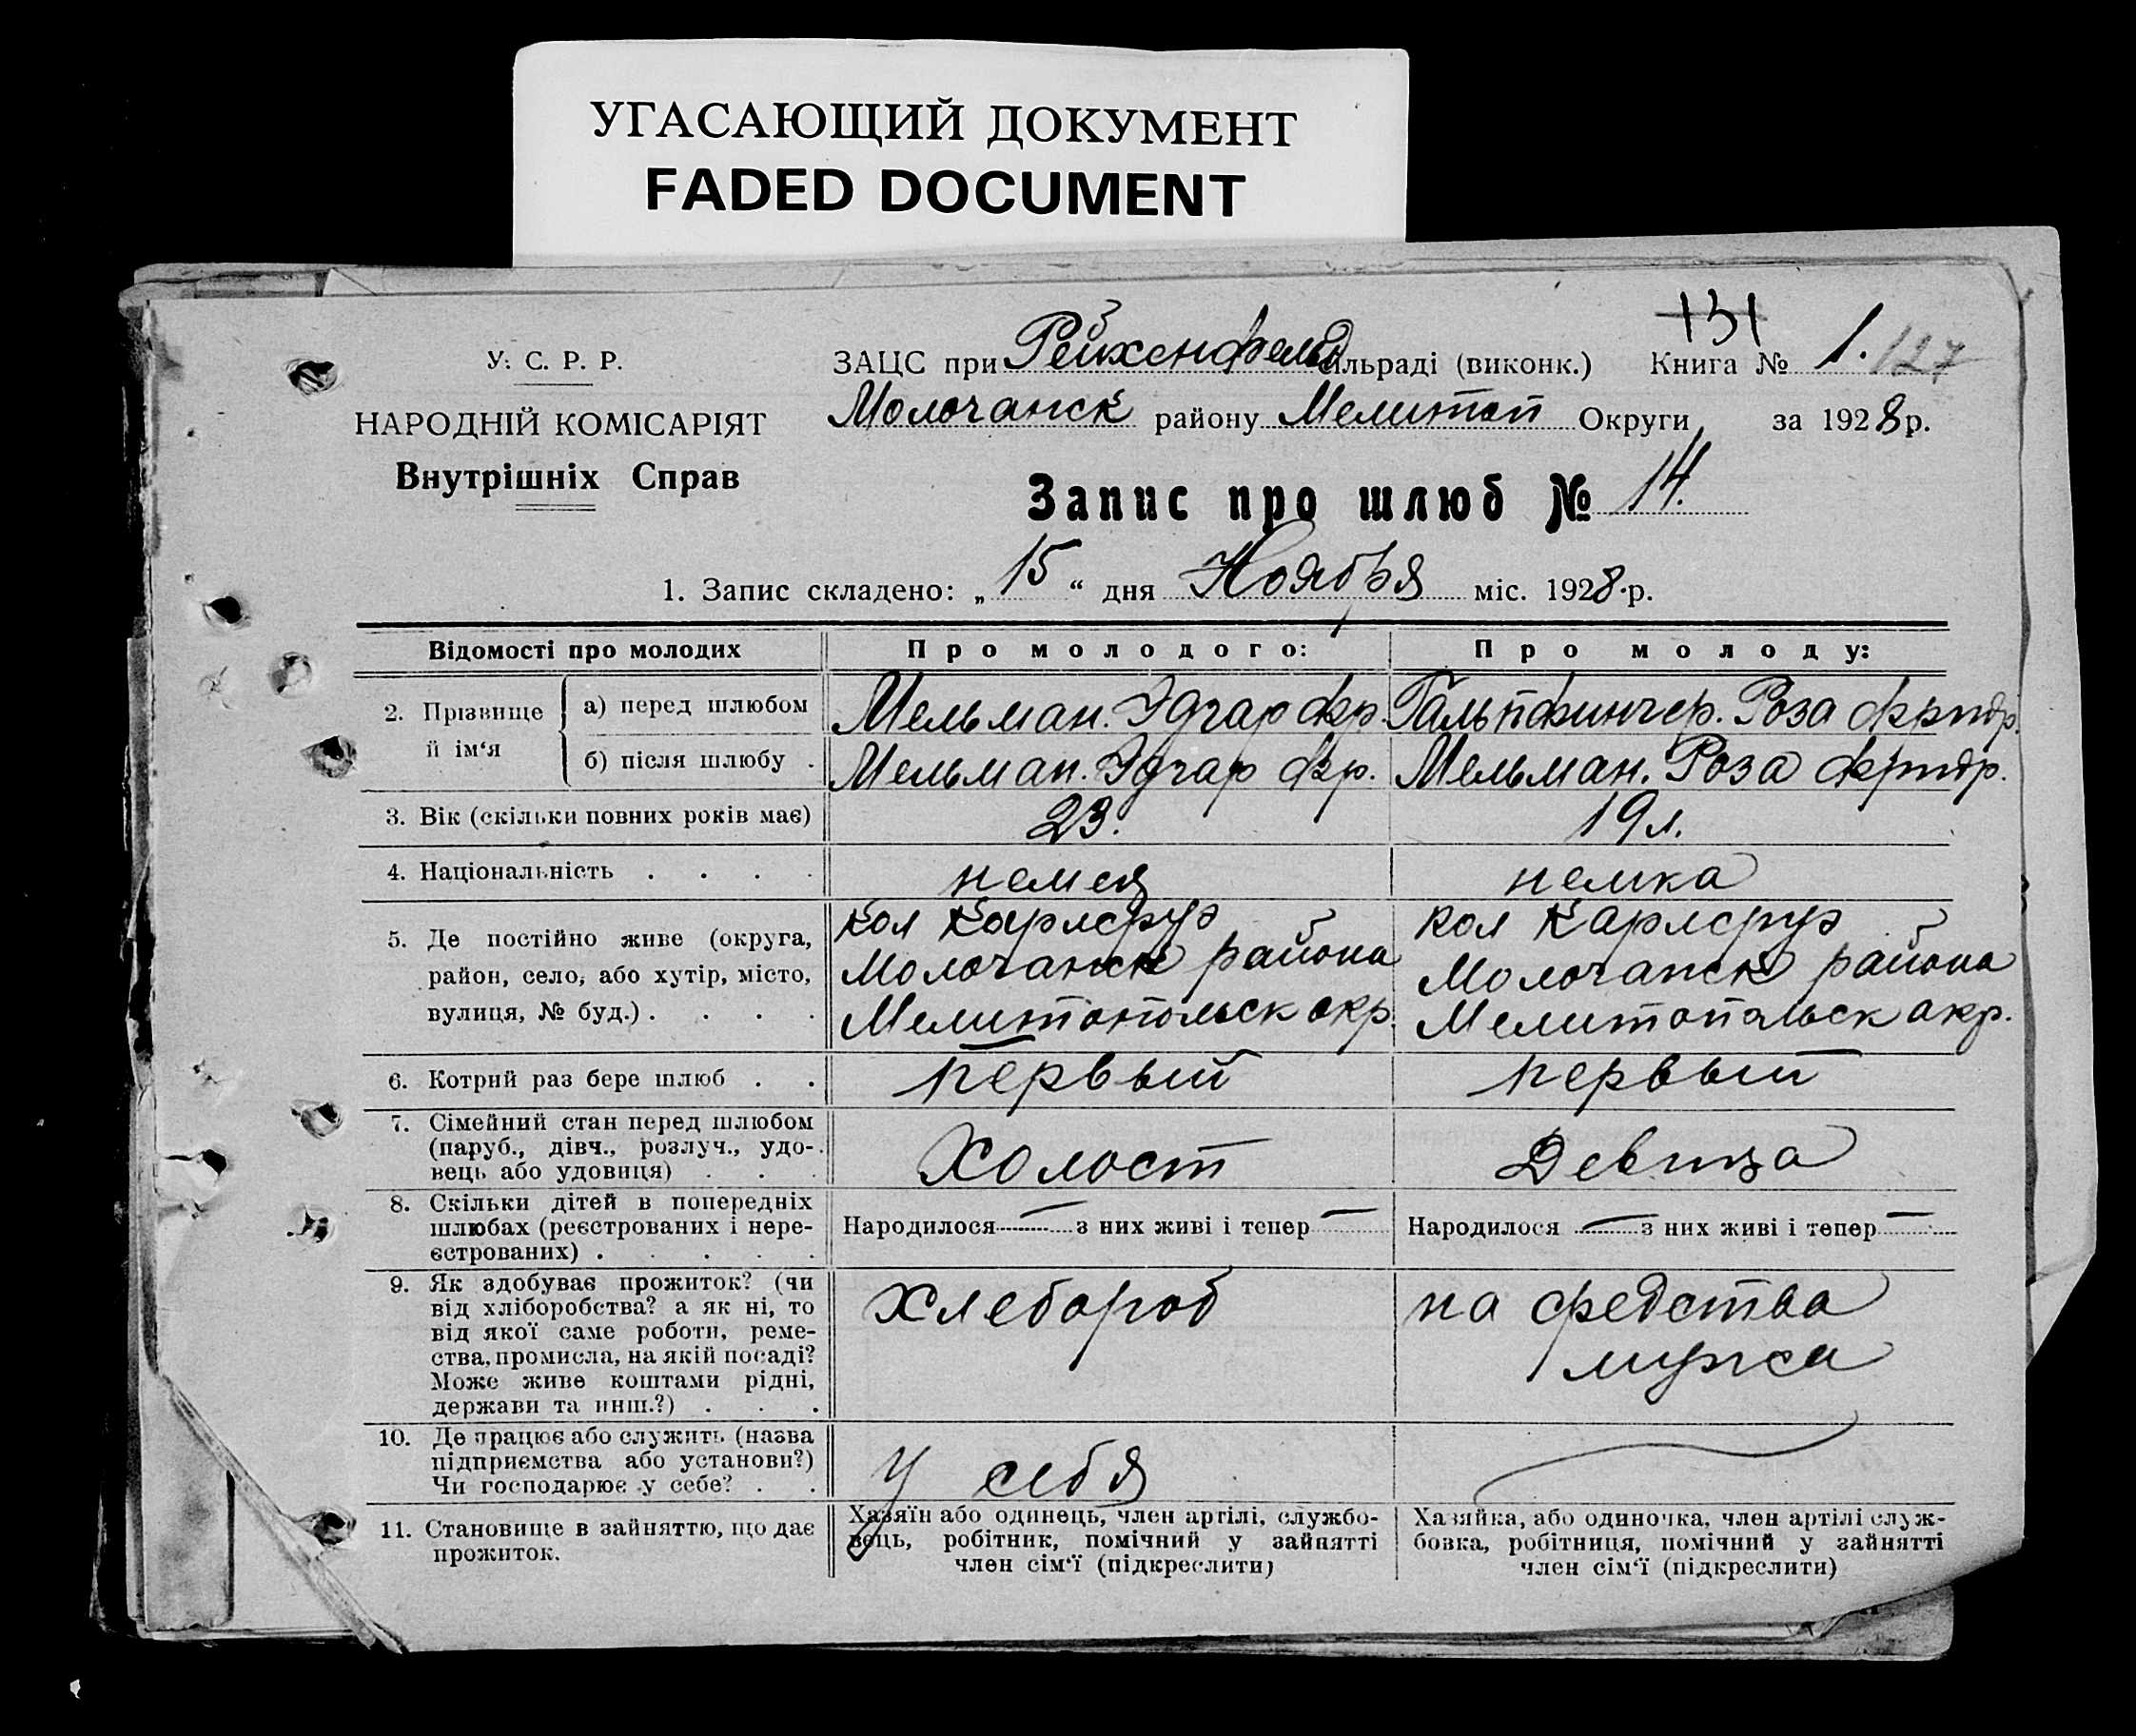 УГАСАЮЩИЙ ДОКУМЕНТ
FADED DOCUMENT
131
У. С. Р. Р.
ЗАЦС при Рейхенфельд сільраді (виконк.) Книга № 1. 127
НАРОДНІЙ КОМІСАРІЯТ
Молочанск району Мелитоп Округи за 1928 р.
Внутрішніх Справ
Запис про шлюб № 14.
1. Запис складено: „ 15 “ дня Ноября міс. 1928 р.
Відомості про молодих
Про молодого:
Про молоду:
2. Прізвище й ім‘я
а) перед шлюбом
Мельман. Эдгар Фр.
Гальпфингер. Роза Фридр.
б) після шлюбу .
Мельман. Эдгар Фр.
Мельман. Роза Фридр.
3. Вік (скільки повних років має)
23.
19 л.
4. Національність . . . .
немец
немка
5. Де постійно живе (округа,
район, село, або хутір, місто,
вулиця, № буд.) . . . .
кол Карлсруэ
Молочанск района
Мелитопольск окр.
кол Карлсруэ
Молочанск района
Мелитопольск окр.
6. Котрий раз бере шлюб . .
первый
первый
7. Сімейний стан перед шлюбом
(паруб., дівч., розлуч., удо-
вець або удовиця) . . .
Холост
Девица
8. Скільки дітей в попередніх
шлюбах (реєстрованих і нере-
єстрованих) . . . . .
Народилося — з них живі і тепер —
Народилося — з них живі і тепер —
9. Як здобуває прожиток? (чи
від хліборобства? а як ні, то
від якої саме роботи, реме-
ства, промисла, на якій посаді?
Може живе коштами рідні,
держави та инш.?) . . .
хлебороб
на средства
мужа
10. Де працює або служить (назва
підприємства або установи?)
Чи господарює у себе? . .
у себя
11. Становище в зайняттю, що дає
прожиток.
Хазяїн або одинець, член артілі, службо-
вець, робітник, помічний у зайнятті
член сім‘ї (підкреслити)
Хазяйка, або одиночка, член артілі служ-
бовка, робітниця, помічний у зайнятті
член сім‘ї (підкреслити)